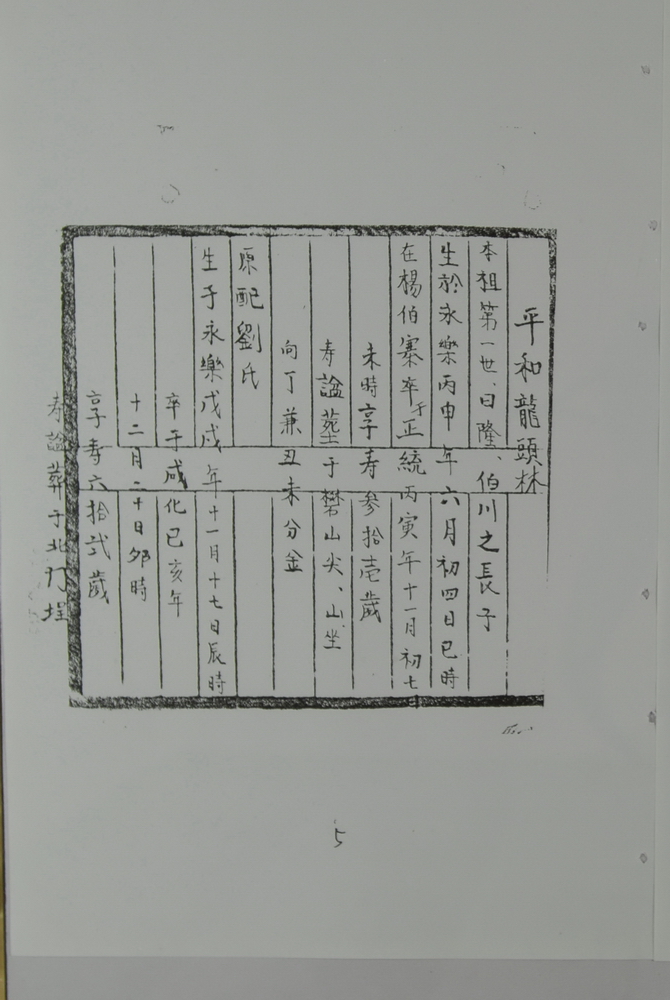 平和龍頭林
本祖第一世、日隆、伯川之長子
生於永樂丙申年六月初四日巳時
在楊伯寨卒于正統丙寅年十一月初七日
未時享寿參拾壱歲
寿謚塟于礬山尖、山坐
向丁兼丑未分金
原配劉氏
生于永樂戊戌年十一月十七日辰時
卒于成化已亥年
十二月二十日夘時
享寿六拾弍歲
寿謚葬于北門埕
5